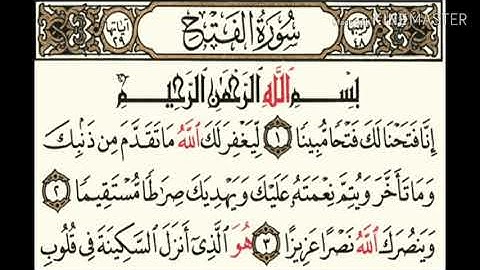 سُورَةُ الفَتْحِ
آياتها ٢٩
KINEMASTER
بِسْمِ اللَّهِ الرَّحْمَٰنِ الرَّحِيمِ
إِنَّا فَتَحْنَا لَكَ فَتْحًا مُّبِينًا ١ لِّيَغْفِرَ لَكَ اللَّهُ مَا تَقَدَّمَ مِن ذَنۢبِكَ
وَمَا تَأَخَّرَ وَيُتِمَّ نِعْمَتَهُ عَلَيْكَ وَيَهْدِيَكَ صِرَاطًا مُّسْتَقِيمًا ٢
وَيَنصُرَكَ اللَّهُ نَصْرًا عَزِيزًا ٣ هُوَ الَّذِي أَنزَلَ السَّكِينَةَ فِي قُلُوبِ